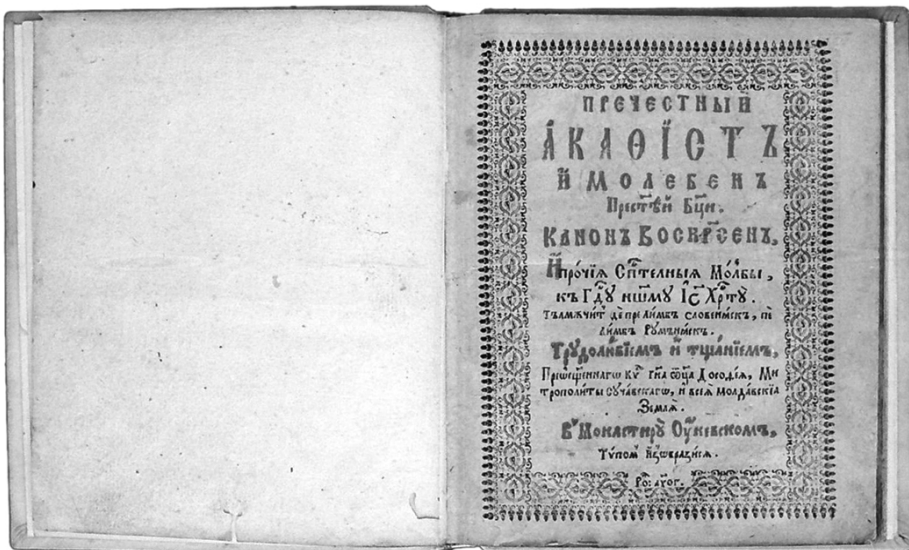 ПРЕЧЕСТНЫЙ
А҆КАѲІ́СТЪ
И҆ МОЛЕБЕНЪ
Прест҃ѣй Бц҃и.
КАНОНЪ ВОСКР҃СЕНЪ,
И҆ про́чїѧ Сп҃телныѧ Мо́лбы,
къ Гд҃ꙋ нш҃мꙋ І҆с҃ Хр҃тꙋ.
Тълмъчит де пре лимбъ словенѣск, пе
лимбъ Румѫнѣск.
Трꙋдолю́бїемъ и҆ тща́нїемъ,
Прео҆сщ҃еннагѡ кѵ҃ гн҃а ѿц҃а Досоѳеѧ, Ми
трополиты сꙋчавскагѡ, и всеѧ молда́вскїѧ
Землѧ.
В Монастирꙋ Оу҆невскомъ,
Тѵпом и҆з̾ѡбразисѧ.
Ро҃: ахог.